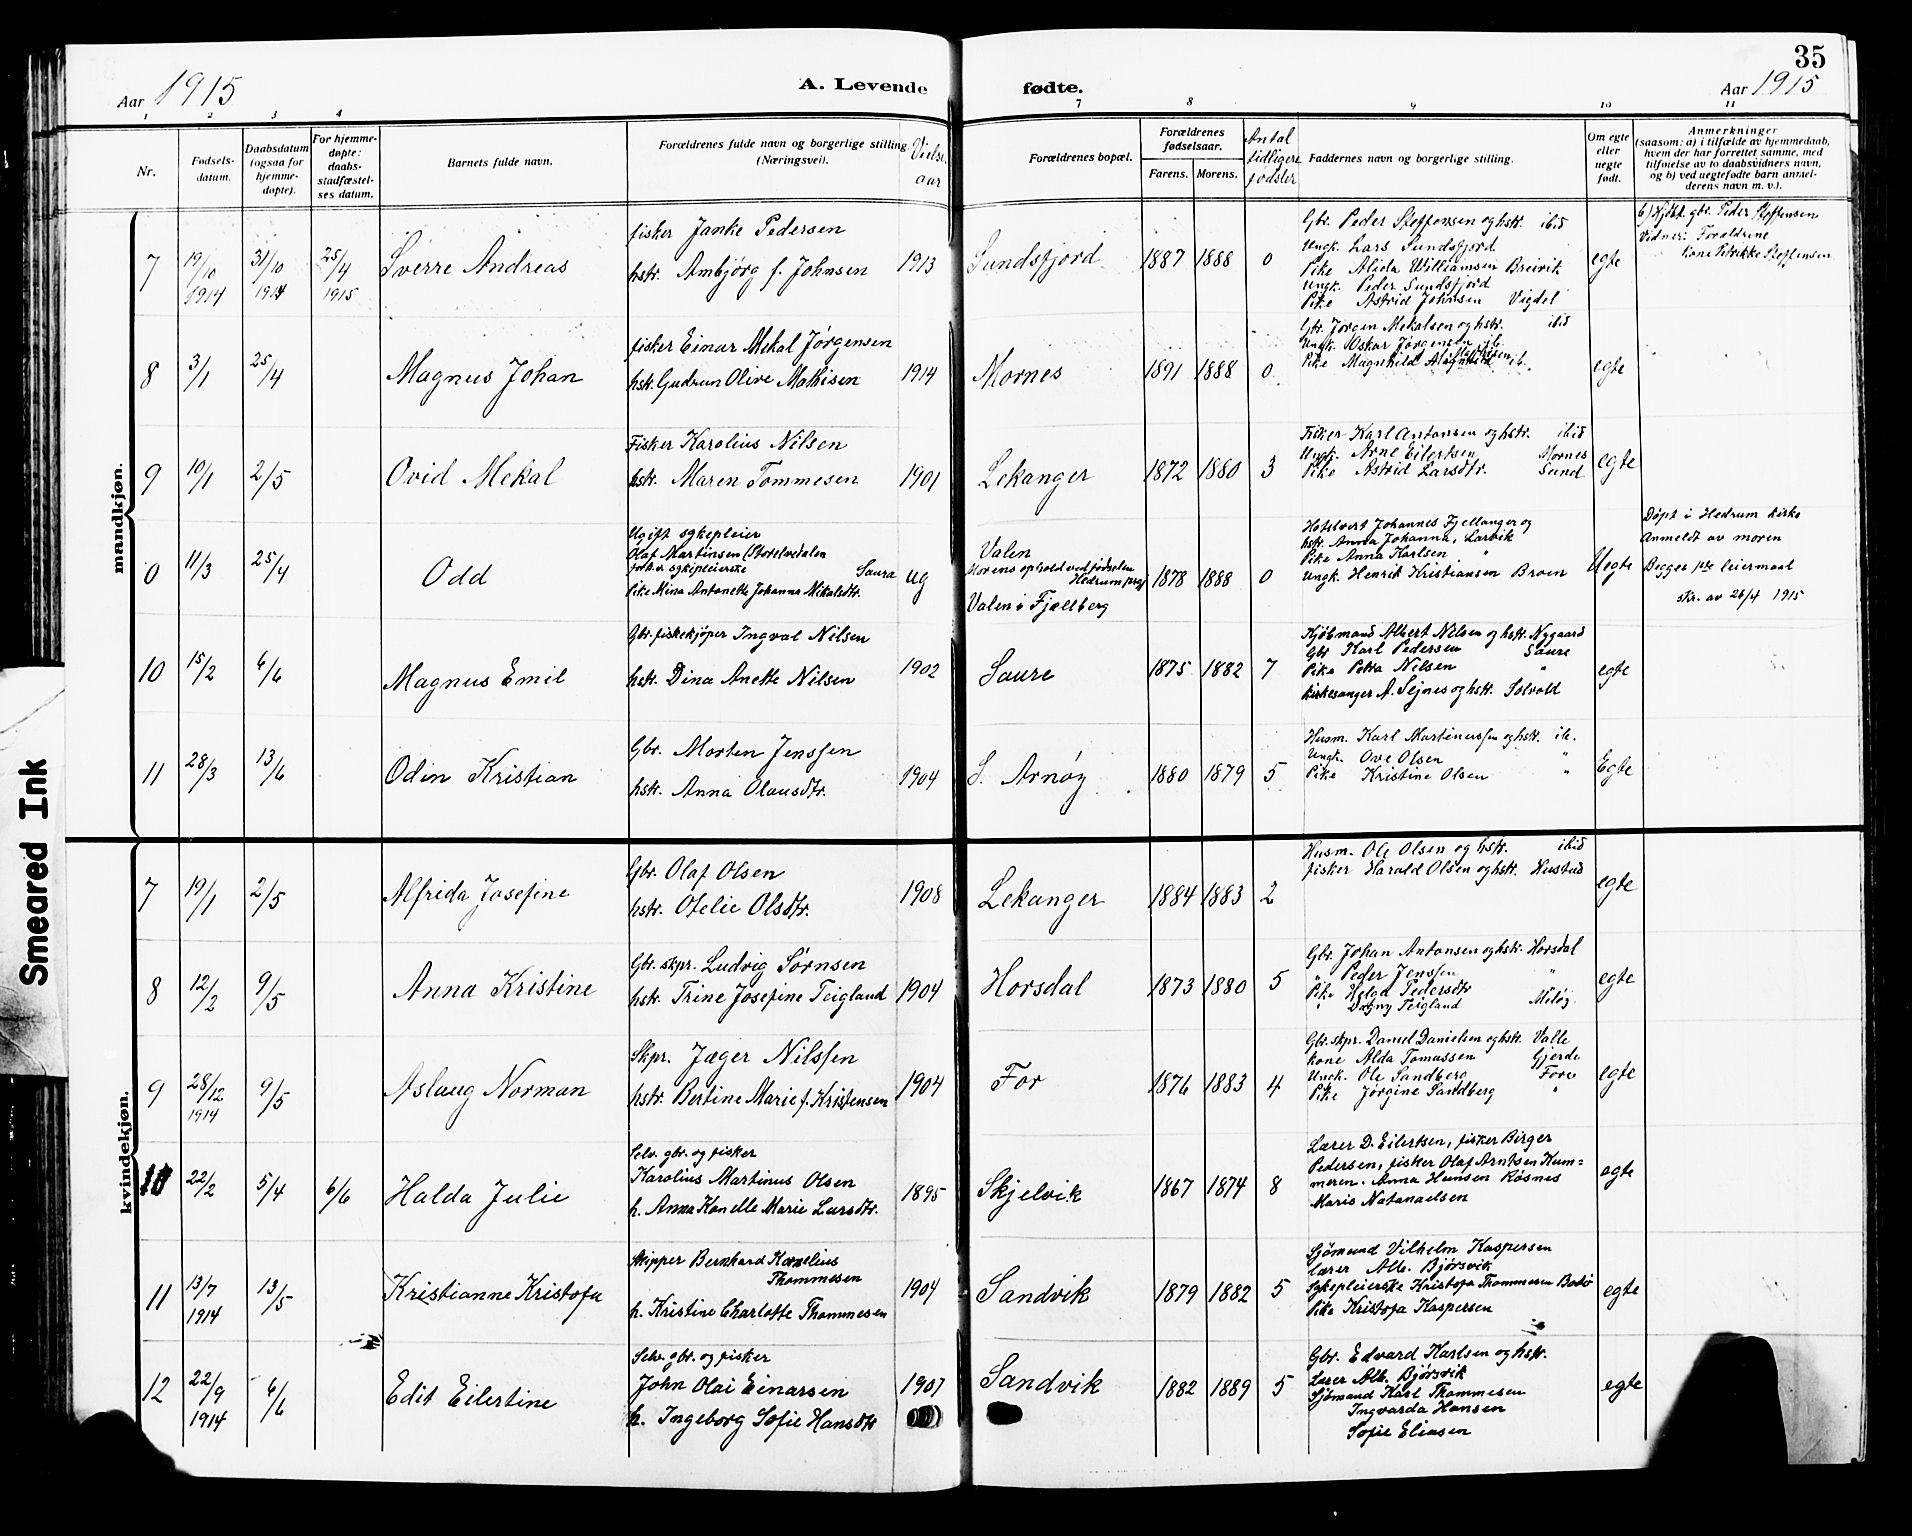 35
Aar 1915
A. Levende fødte.
Aar 1915
1 2 3 4 7 8 9 10 11
Nr.
Fødsels-
datum.
Daabsdatum
(ogsaa for
hjemme-
døpte).
For hjemme-
døpte:
daabs-
stadfæstel-
ses datum.
Barnets fulde navn.
Forældrenes fulde navn og borgerlige stilling.
(Næringsvei).
Vielses
aar
Forældrenes bopæl.
Forældrenes
fødselsaar.
Farens. Morens.
Antal
tidligere
fødsler
Faddernes navn og borgerlige stilling.
Om egte
eller
uegte
født.
Anmerkninger
(saasom: a) i tilfælde av hjemmedaab,
hvem der har forrettet samme, med
tilføielse av to daabsvidners navn,
og b) ved uegtefødte barn anmel-
derens navn m. v.).
mandkjøn.
7 19/10 1914 31/10 1914 25/4 1915 Sverre Andreas
fisker Janke Pedersen
hstr. Ambjørg f. Johnsen 1913
Sundsfjord 1887 1888 0
Gbr. Peder Steffensen og hstr. ibid
Ungk. Lars Sundsfjord
Pike Alida Williamsen Breivik
Ungk. Peder Sundsfjord
Pike Astrid Johnsen Vigdel
egte
Hjdøpt. gbr. Peder Steffensen
Vidner: Forældrene
Kone Petrikke Steffensen
8 3/1 25/4 Magnus Johan
fisker Einar Mekal Jørgensen
hstr. Gudrun Olive Mathisen 1914
Mornes 1891 1888 0
Gbr. Jørgen Mekalsen og hstr. ibid
Ungk. Oskar Jørgensen ib.
Pike Magnhild ib.
egte
9 10/1 2/5 Ovid Mekal
Fisker Karolius Nilsen
hstr. Maren Tommesen 1901
Lekanger 1872 1880 3
Fisker Karl Antonsen og hstr. ibid
Ungk. Arne Eilertsen Mornes
Pike Astrid Larsdtr. Sund
egte
0 11/3 25/4 Odd
Ugift sykepleier
Olaf Martinsen (Storelvedalen
forh.v. sykepleierske Saura
Pike Mina Antonette Johanna Nikolsdtr. ug
Valen
Morens ophold ved fødselen
Hedrum prgj
Valen i Fjellberg
1878 1888 0
Hotelvert Johannes Fjellanger og
hstr. Anna Johanna, Larvik
Pike Anna Karlsen "
Ungk. Henrik Kristiansen Broen
Uegte
Døpt i Hedrum kirke
Anmeldt av moren
Begges 1ste leiermaal
skr. av 26/4 1915
10 15/2 6/6 Magnus Emil
Gbr. fiskekjøper Ingval Nilsen
hstr. Dina Anette Nilsen 1902
Saure 1875 1882 7
Kjøbmand Albert Nilsen og hstr. Nygaard
Gbr Karl Pedersen Saure
Pike Petra Nilsen "
Kirkesanger A. Sejnes og hstr. Solvold
egte
11 28/3 13/6 Odin Kristian
Gbr. Morten Jenssen
hstr. Anna Olausdtr. 1904
S. Arnøy 1880 1879 5
Husm. Karl Martinussen og hstr. ib.
Ungk. Ove Olsen "
Pike Kristine Olsen "
Egte
kvindekjøn.
7 19/1 2/5 Alfrida Josefine
Gbr. Olaf Olsen
hstr. Ofelie Olsdtr. 1908
Lekanger 1884 1883 2
Husm. Ole Olsen og hstr. ibid
fisker Harald Olsen og hstr. Hustad
egte
8 12/2 9/5 Anna Kristine
Gbr. skpr. Ludvig Sørnsen
hstr. Trine Josefine Teigland 1904
Horsdal 1873 1880 5
Gbr. Johan Antonsen og hstr. Horsdal
" Peder Jenssen "
Pike Helga Pedersdtr
" Dagny Teigland Meløy
egte
9 28/12 1914 9/5 Aslaug Norman
Skpr. Jæger Nilssen
hstr. Bertine Marie f. Kristensen 1904
For 1876 1883 4
Gbr. skpr. Daniel Danielsen og hstr. Valle
kone Alda Tomassen Gjerde
Ungk. Ole Sandberg Fore
Pike Jørgine Sandberg "
egte
10 22/2 5/4 6/6 Halda Julie
Selv. gbr. og fisker
Karolius Martinus Olsen
h. Anna Kanelle Marie Larsdtr. 1895
Skjelvik 1867 1874 8
Lærer D. Eilertsen, fisker Birger
Pedersen, fisker Olaf Arntsen Kum=
meren. Anna Hansen Røsnes
Marie Natanaelsen
egte
11 13/7 1914 13/5 Kristianne Kristofa
Skipper Bernhard Kornelius
Thommesen
h. Kristine Charlotte Thommesen 1904
Sandvik 1879 1882 5
Sjømand Vilhelm Kaspersen
Lærer Alb. Bjørsvik
Sykepleierske Kristofa Thommesen Bodø
Pike Kristofa Kaspersen
egte
12 22/9 1914 6/6 Edit Eilertine
Selv. gbr. og fisker
John Olai Einarsen
h. Ingeborg Sofie Hansdtr 1907
Sandvik 1882 1889 5
Gbr. Edvard Karlsen og hstr.
Lærer Alb. Bjørsvik
Sjømand Karl Thommesen
Ingvarda Hansen
Sofie Eliasen
egte
Smeared Ink